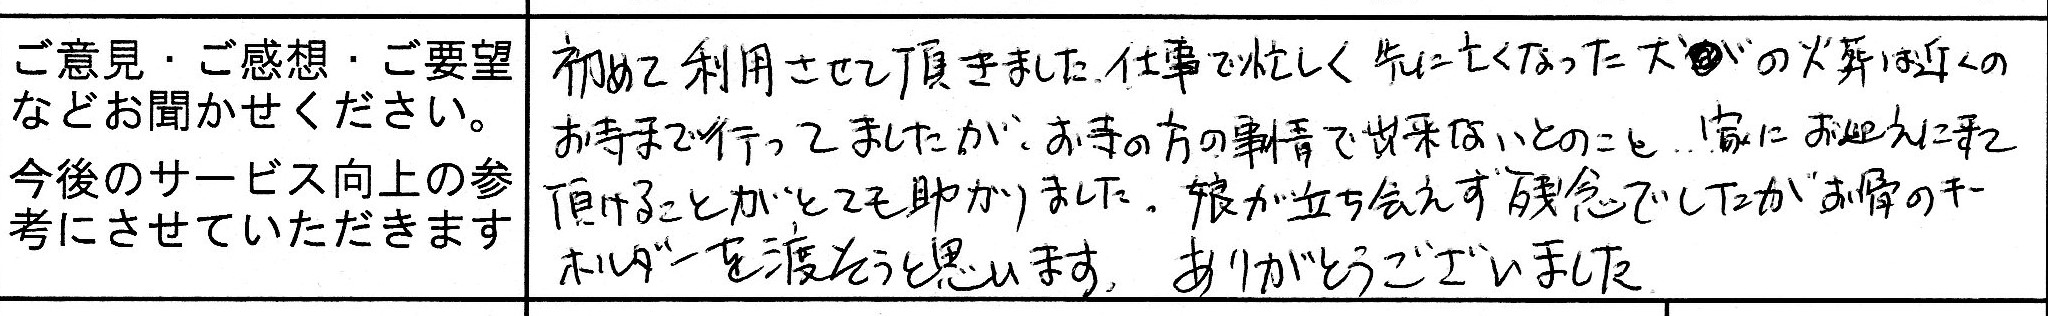 ご意見・ご感想・ご要望
などお聞かせください。
今後のサービス向上の参
考にさせていただきます
初めて利用させて頂きました.仕事で忙しく先に亡くなった犬がの火葬は近くの
お寺まで行ってましたが、お寺の方の事情で出来ないとのこと..家にお迎えに来て
頂けることがとても助かりました。娘が立ち会えず残念でしたがお骨のキー
ホルダーを渡そうと思います。ありがとうございました